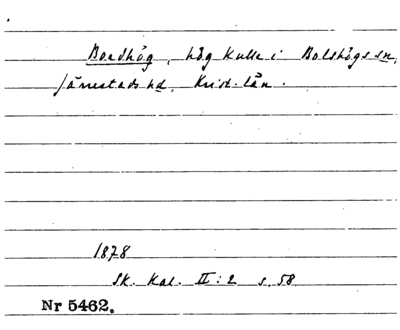 Boedhög, hög kulle i Bolshögs sn,
Järrestads hd, Krist. län.
1878
Sk. Kal. II:2 s. 58
Nr 5462.